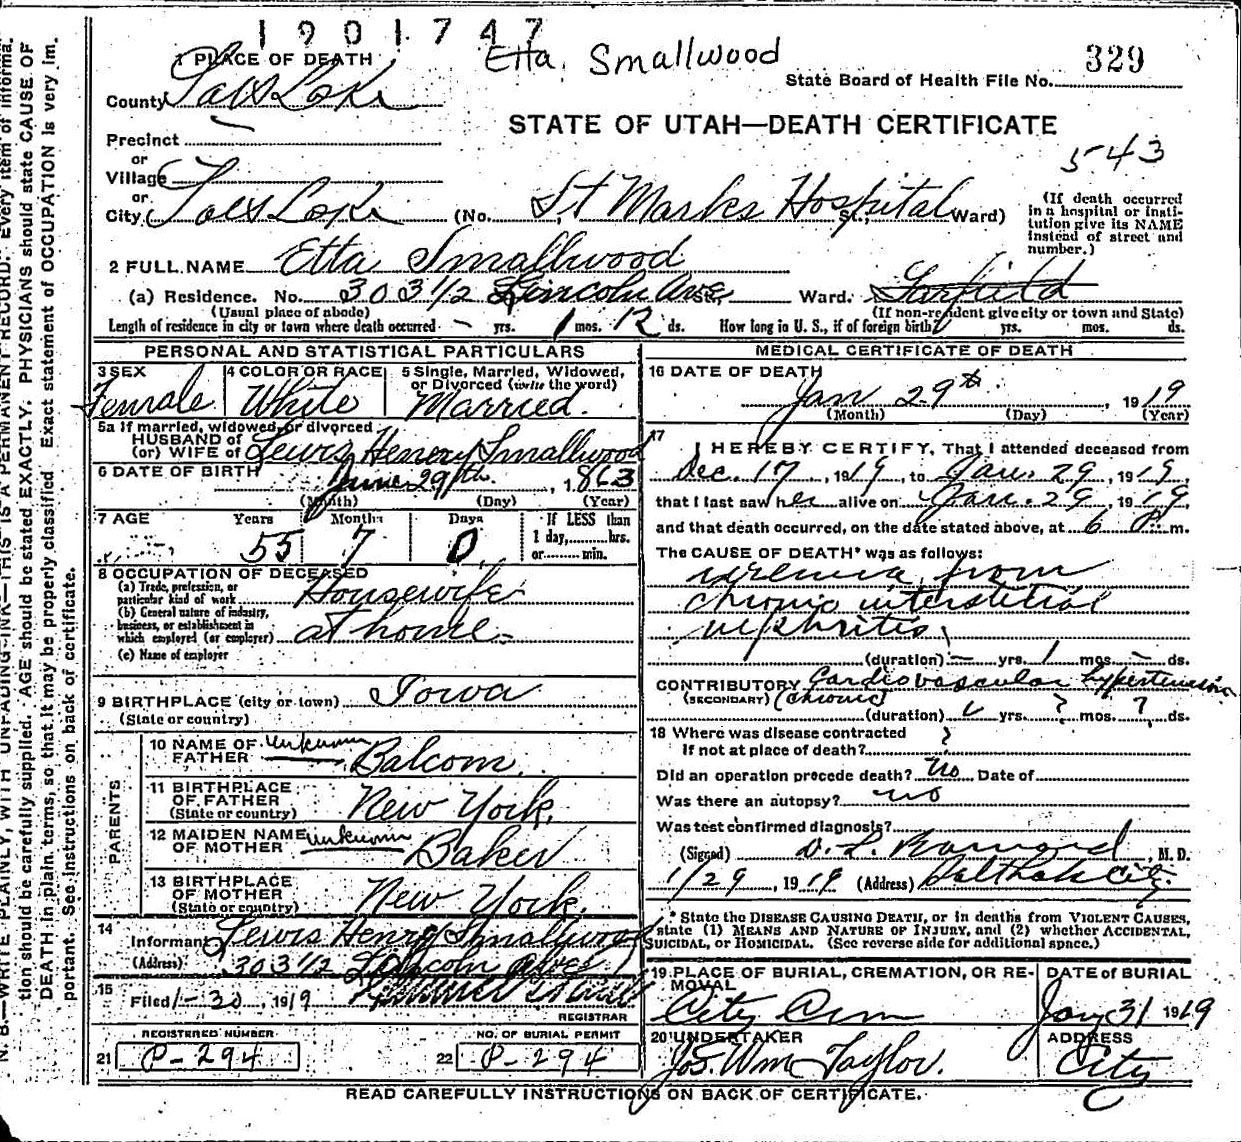 1901747
Etta Smallwood
329
1 PLACE OF DEATH
State Board of Health File No.
County Salt Lake
STATE OF UTAH—DEATH CERTIFICATE
Precinct
543
or
Village
or
City Salt Lake (No. St Marks Hospital St., Ward)
(If death occurred
in a hospital or insti-
tution give its NAME
instead of street and
number.)
2 FULL NAME Etta Smallwood
(a) Residence. No. 303 1/2 Lincoln Ave St., Ward. Garfield
(Usual place of abode) (If non-resident give city or town and State)
Length of residence in city or town where death occurred - yrs. 1 mos. 12 ds. How long in U. S., if of foreign birth? yrs. mos. ds.
PERSONAL AND STATISTICAL PARTICULARS
3 SEX 4 COLOR OR RACE 5 Single, Married, Widowed,
or Divorced (write the word)
Female White Married.
5a If married, widowed, or divorced
HUSBAND of
(or) WIFE of Lewis Henery Smallwood
6 DATE OF BIRTH June 29th, 1863
(Month) (Day) (Year)
7 AGE Years Months Days If LESS than
1 day, hrs.
or min.
55 7 0
8 OCCUPATION OF DECEASED
(a) Trade, profession, or
particular kind of work Housewife
(b) General nature of industry,
business, or establishment in
which employed (or employer) at home.
(c) Name of employer
9 BIRTHPLACE (city or town) Iowa
(State or country)
PARENTS
10 NAME OF
FATHER unknown Balcom.
11 BIRTHPLACE
OF FATHER
(State or country) New York.
12 MAIDEN NAME
OF MOTHER unknown Baker
13 BIRTHPLACE
OF MOTHER
(State or country) New York.
14
Informant Lewis Henery Smallwood
(Address) 303 1/2 Lincoln Ave
15
Filed 1-30, 1919
REGISTRAR
REGISTERED NUMBER NO. OF BURIAL PERMIT
21 P-294 22 P-294
MEDICAL CERTIFICATE OF DEATH
16 DATE OF DEATH
Jan 29th, 1919
(Month) (Day) (Year)
17
I HEREBY CERTIFY, That I attended deceased from
Dec. 17, 1919, to Jan. 29, 1919,
that I last saw her alive on Jan. 29, 1919,
and that death occurred, on the date stated above, at 6 P. m.
The CAUSE OF DEATH* was as follows:
uremia from
chronic interstitial
nephritis.
(duration) - yrs. 1 mos. - ds.
CONTRIBUTORY Cardiovascular hypertension
(SECONDARY) (chronic)
(duration) yrs. ? mos. ? ds.
18 Where was disease contracted
If not at place of death? ?
Did an operation precede death? No Date of
Was there an autopsy? no
Was test confirmed diagnosis?
(Signed) D. L. Barnard, M. D.
1/29, 1919 (Address) Salt Lake City.
* State the DISEASE CAUSING DEATH, or in deaths from VIOLENT CAUSES,
state (1) MEANS AND NATURE OF INJURY, and (2) whether ACCIDENTAL,
SUICIDAL, or HOMICIDAL. (See reverse side for additional space.)
19 PLACE OF BURIAL, CREMATION, OR RE-
MOVAL
City Cem
DATE of BURIAL
Jan 31 1919
20 UNDERTAKER
Jos. Wm Taylor.
ADDRESS
City
READ CAREFULLY INSTRUCTIONS ON BACK OF CERTIFICATE.
N. B.—WRITE PLAINLY, WITH UNFADING INK—THIS IS A PERMANENT RECORD. Every item of informa-
tion should be carefully supplied. AGE should be stated EXACTLY. PHYSICIANS should state CAUSE OF
DEATH in plain terms, so that it may be properly classified. Exact statement of OCCUPATION is very im-
portant. See instructions on back of certificate.